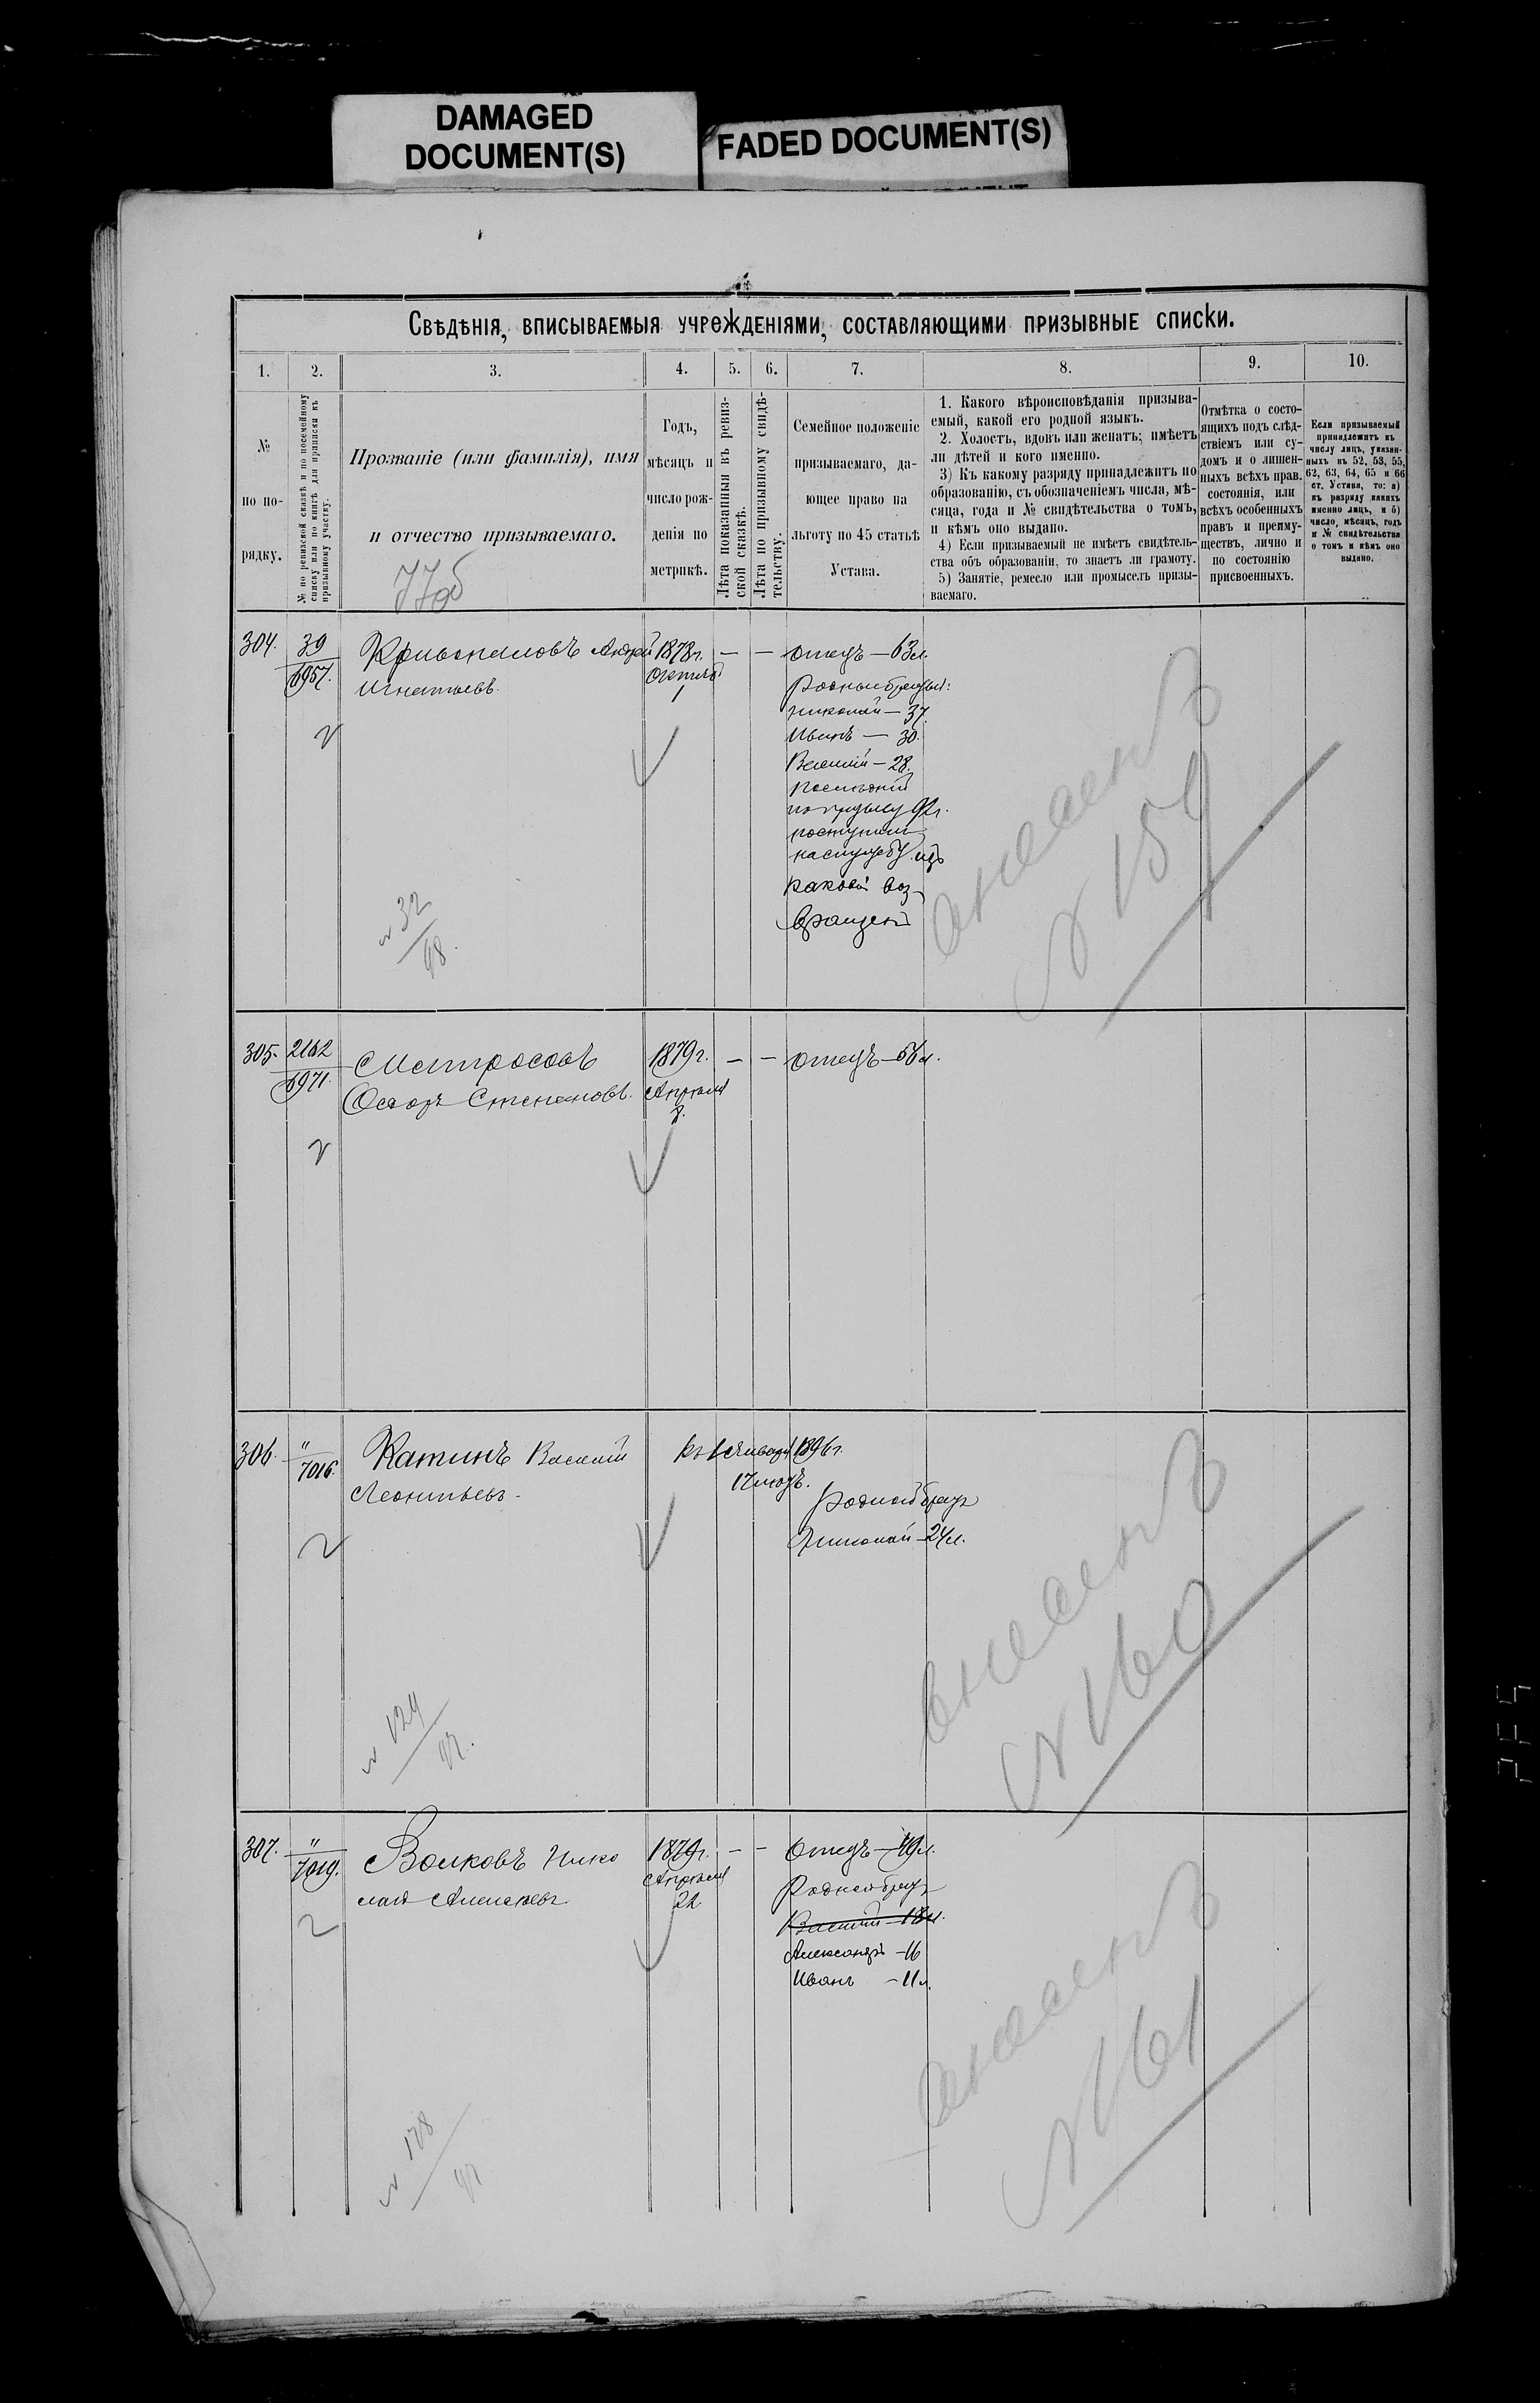 DAMAGED
DOCUMENT(S)
FADED DOCUMENT(S)
Свѣдѣнія, вписываемыя учрежденіями, составляющими призывные списки.
1. 2. 3. 4. 5. 6. 7. 8. 9. 10.
№
по по-
рядку.
№ по ревизской сказкѣ и по посемейному
списку или по книгѣ для приписки къ
призывному участку.
Прозваніе (или фамилія), имя
и отчество призываемаго.
77об
Годъ,
мѣсяцъ и
число рож-
денія по
метрикѣ.
Лѣта показанныя въ ревиз-
ской сказкѣ.
Лѣта по призывному свидѣ-
тельству.
Семейное положеніе
призываемаго, да-
ющее право на
льготу по 45 статьѣ
Устава.
1. Какого вѣроисповѣданія призыва-
емый, какой его родной языкъ.
2. Холостъ, вдовъ или женатъ; имѣетъ
ли дѣтей и кого именно.
3) Къ какому разряду принадлежитъ по
образованію, съ обозначеніемъ числа, мѣ-
сяца, года и № свидѣтельства о томъ,
и кѣмъ оно выдано.
4) Если призываемый не имѣетъ свидѣтель-
ства объ образованіи, то знаетъ ли грамоту.
5) Занятіе, ремесло или промыселъ призы-
ваемаго.
Отмѣтка о состо-
ящихъ подъ слѣд-
ствіемъ или су-
домъ и о лишен-
ныхъ всѣхъ прав.
состоянія, или
всѣхъ особенныхъ
правъ и преиму-
ществъ, лично и
по состоянію
присвоенныхъ.
Если призываемый
принадлежитъ къ
числу лицъ, указан-
ныхъ въ 52, 53, 55,
62, 63, 64, 65 и 66
ст. Устава, то: а)
къ разряду какихъ
именно лицъ, и б)
число, мѣсяцъ, годъ
и № свидѣтельства
о томъ и кѣмъ оно
выдано.
304. 39
6957.
Андрей
Игнатьевъ
1878г.
Октяб
1
— —
отецъ — 63л.
Родные братья:
Николай — 37
Иванъ — 30.
Василий — 28.
последний
по призыву 92г.
поступил
на службу изъ
каковой воз
вращенъ
внесенъ
№ 159
№ 32
98.
305. 2162
6971.
Матросовъ
Федоръ Степановъ.
1879г.
Апреля
8.
— —
отецъ — 56л.
306. "
7016.
Катинъ Василий
Леонтьевъ.
къ 1 Января 1896г.
17 годъ.
Родной братъ
Николай — 24л.
внесенъ
№ 160
№ 124
97.
307. "
7019.
Волковъ Нико
лай Алексѣевъ
1879г.
Апреля
22
— —
Отецъ — 49л.
Родной братъ
Василий — 18л.
Александръ — 16
Иванъ — 11л.
внесенъ
№ 161
№ 178
97